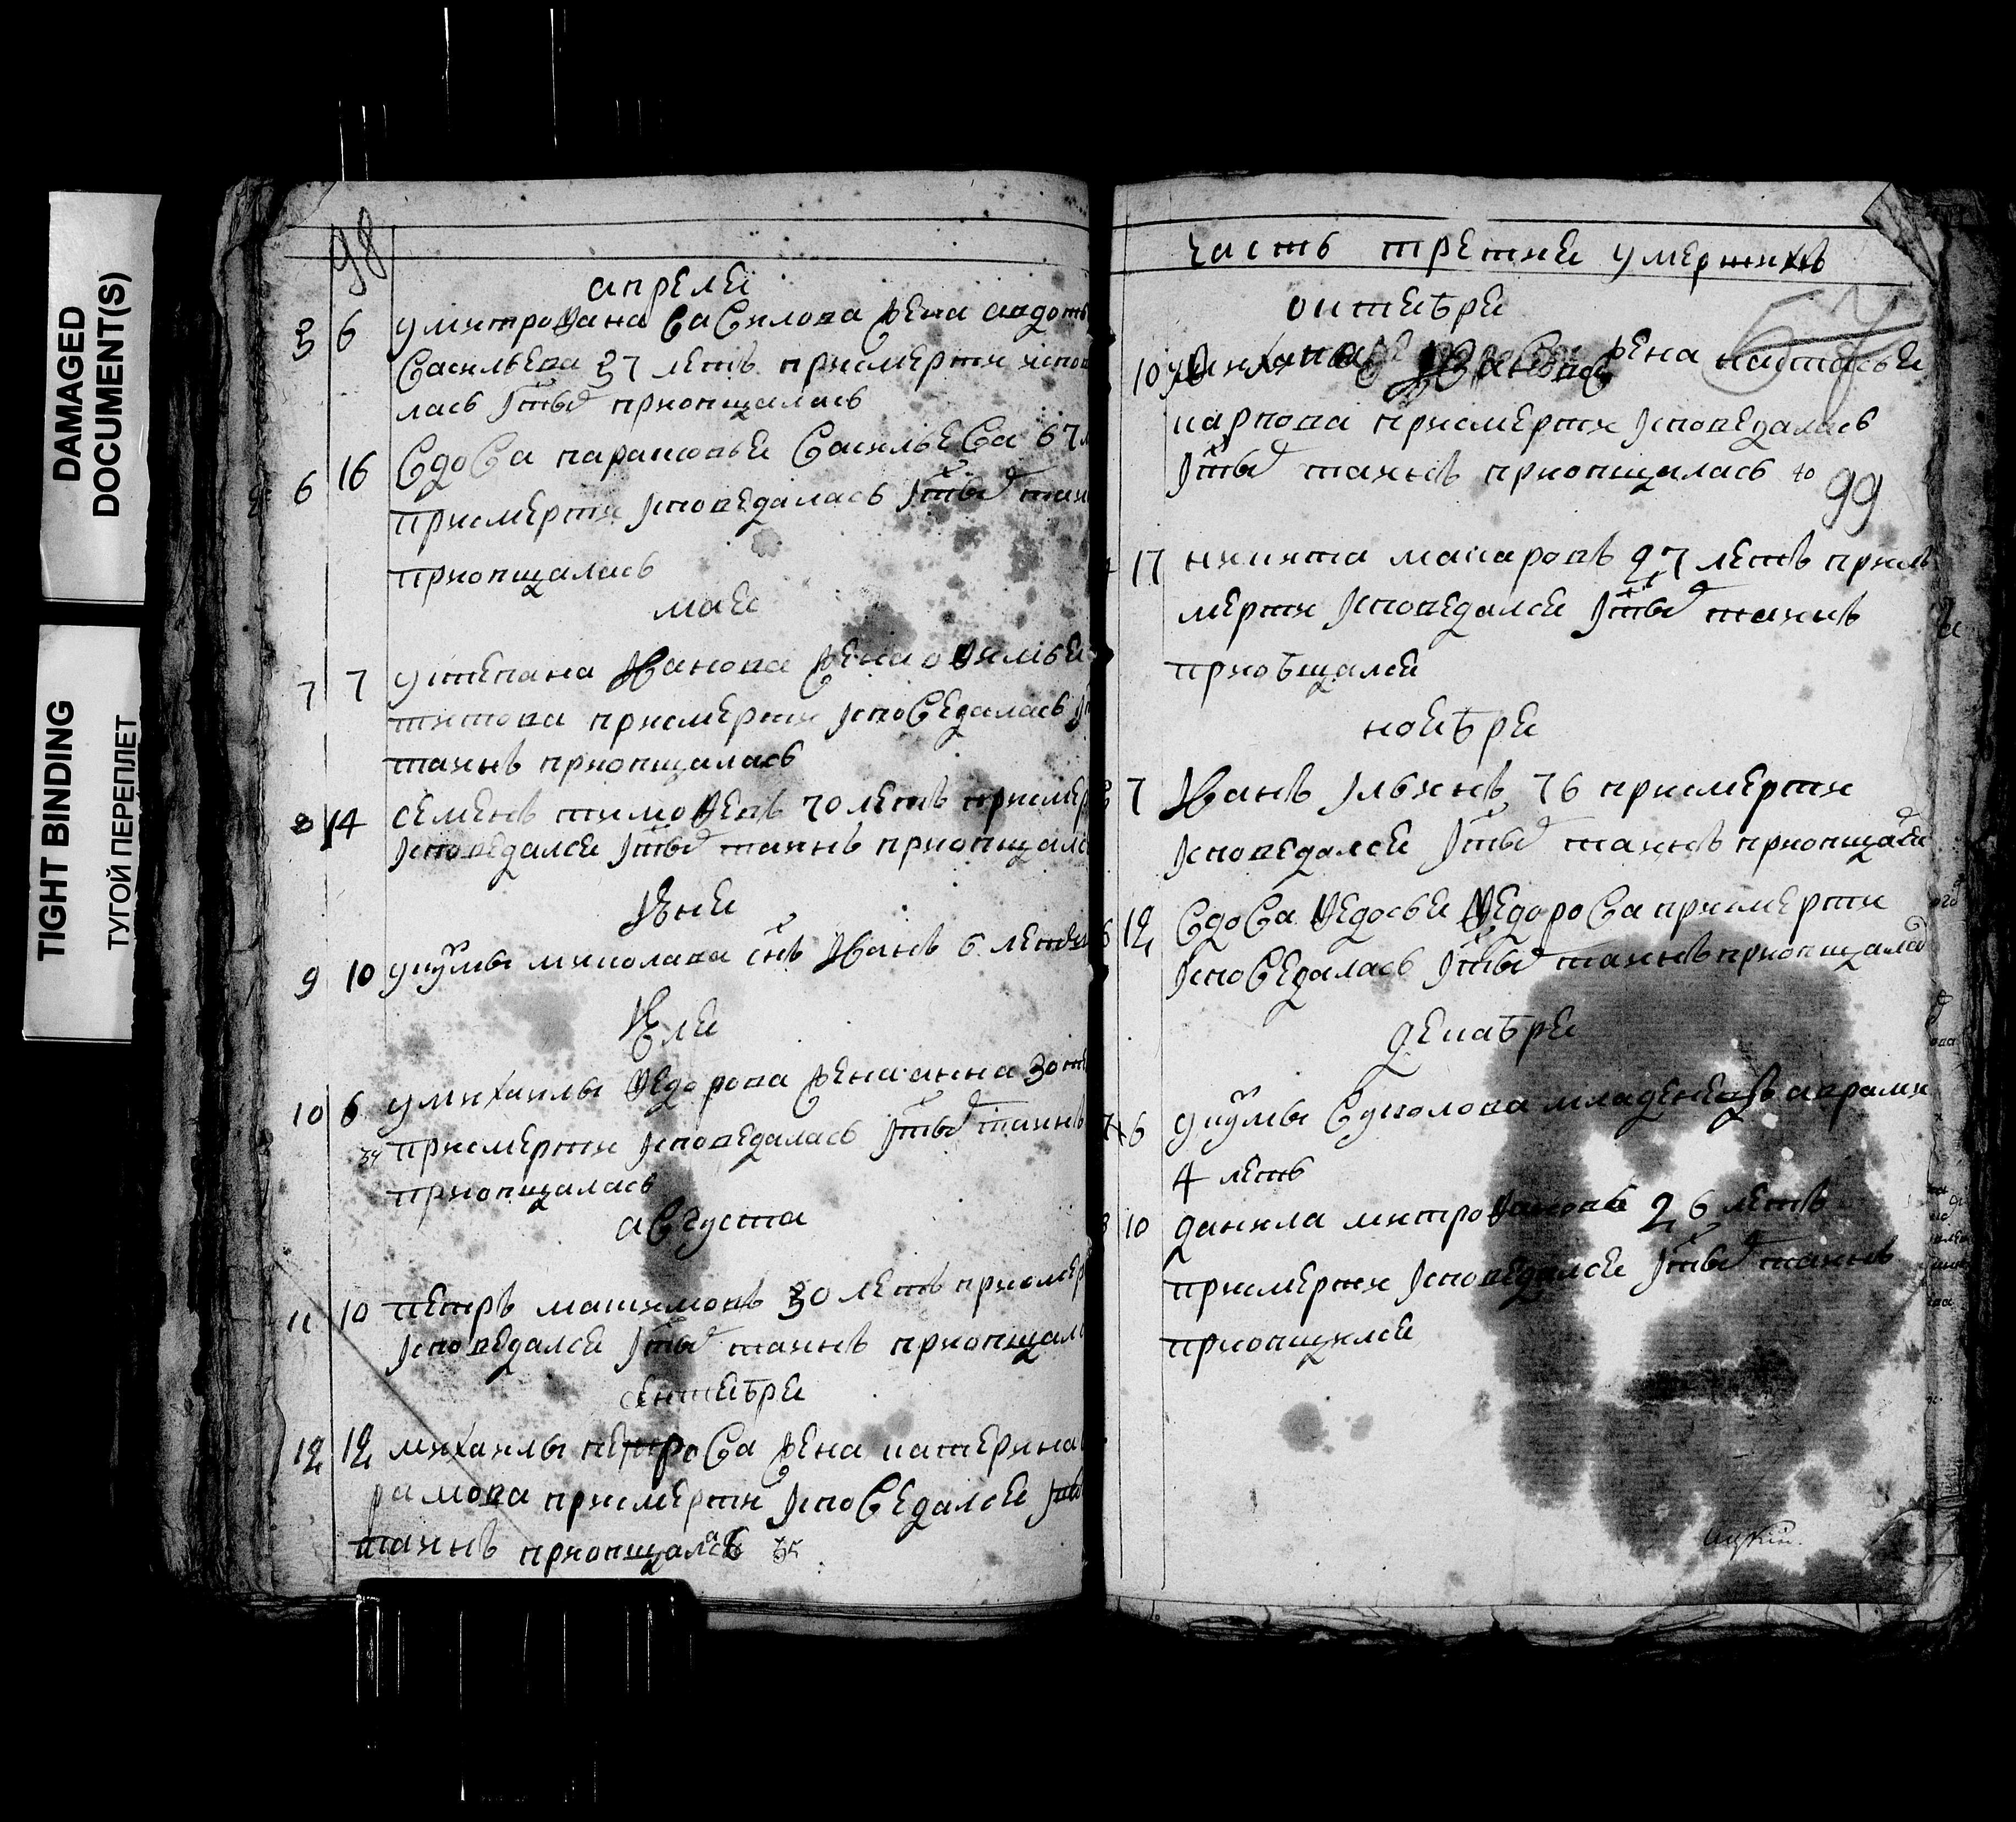 DAMAGED
DOCUMENT(S)
TIGHT BINDING
ТУГОЙ ПЕРЕПЛЕТ
98
апреля
5 6 у митрофана василова жена авдоть
васильева 37 летъ присмерти испов
лась тых приопщалась
6 16 вдова парасковья васильева 67 л
присмерти исповедалась тых таи
приопщалась
мая
7 7 у степана иванова жена офимья
титова присмерти исповедалась
таинъ приопщалась
8 14 семенъ тимофеевъ 70 летъ присмер
исповедался тых таинъ приопщалс
июня
9 10 у кузмы миколаева снъ иванъ 6 летъ
июля
10 6 у михаилы федорова жена анна 30
34 присмерти исповедалась тых таинъ
приопщалась
августа
11 10 петръ максимовъ 30 летъ присмер
исповедался тых таинъ приопщалс
сентября
12 12 михаилы петрова жена катерина
рамова присмерти исповедался
таинъ приопщалась 35
часть третия умершихъ
октября
10 жена настасья
карпова присмерти исповедалась
тых таинъ приопщалась 40
99
17 никита макаровъ 27 летъ присъ
мерти исповедался тых таинъ
приобщался
ноября
7 иванъ ильинъ 76 присмерти
исповедался тых таинъ приопщался
12 вдова федосья федорова присмерти
исповедалась тых таинъ приопщалась
декабря
7 6 у кузмы младенецъ аврами
4 летъ
10 данила митрофановъ 26 летъ
присмерти исповедался тых таинъ
приопщился